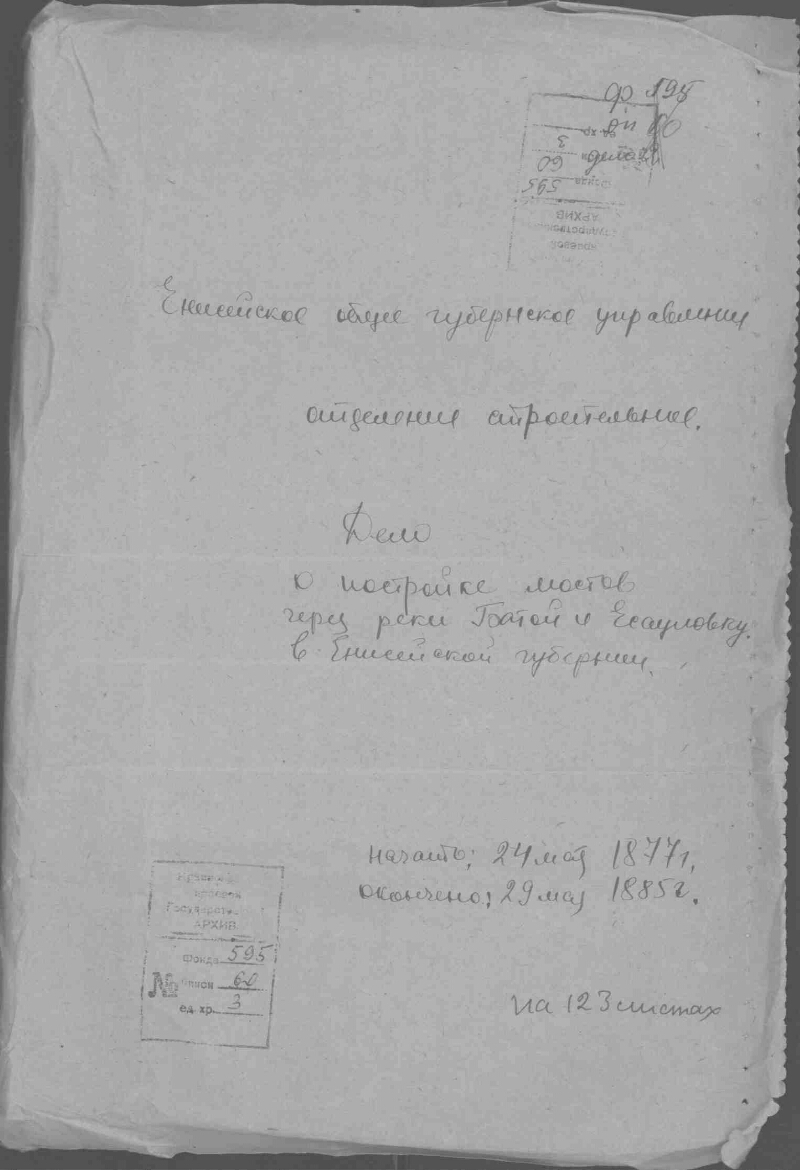 ф 595
оп 60
дело
ед. хр. 3
60
Фонда 595
АРХИВ
Государственный
краевой
Енисейское общее губернское управление
отделение строительное.
Дело
о постройке мостов
через реки Ботой и Есауловку.
в Енисейской губернии.
начато: 24 мая 1877 г.
окончено: 29 мая 1885 г.
краевой
Государстве
АРХИВ
Фонда 595
№ описи 60
ед. хр. 3
на 123 листах